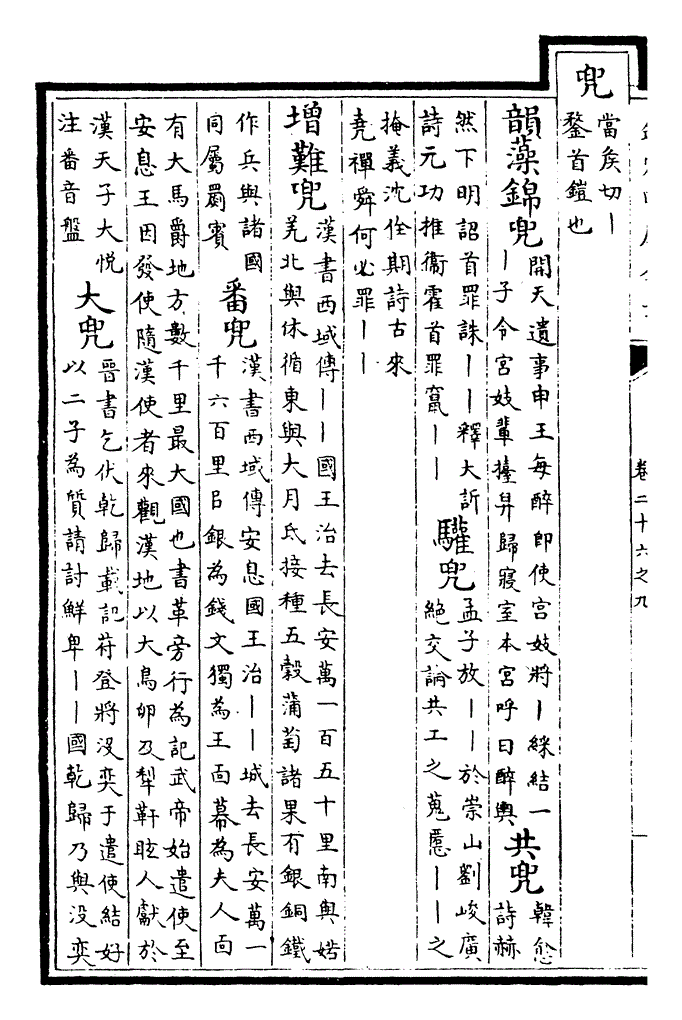 卷二十六之九
兜
當矦切丨
鍪首鎧也
韻藻錦兜
開天遺事申王每醉即使宫妓將丨綵結一
丨子令宫妓輩擡舁歸寢室本宫呼曰醉輿
共兜
韓愈
詩赫
然下明詔首罪誅丨丨釋大訢
詩元功推衞霍首罪竄丨丨
驩兜
孟子放丨丨於崇山劉峻廣
絶交論共工之蒐慝丨丨之
掩義沈佺期詩古來
堯禪舜何必罪丨丨
增難兜
漢書西域傳丨丨國王治去長安萬一百五十里南與婼
羌北與休循東與大月氐接種五榖蒲萄諸果有銀銅鐵
作兵與諸國
同屬罽賓
番兜
漢書西域傳安息國王治丨丨城去長安萬一
千六百里㠯銀為錢文獨為王面幕為夫人面
有大馬爵地方數千里最大國也書革旁行為記武帝始遣使至
安息王因發使隨漢使者來觀漢地以大鳥卵及犁靬眩人獻於
漢天子大悦
注番音盤
大兜
晉書乞伏乾歸載記苻登將没奕于遣使結好
以二子為質請討鮮卑丨丨國乾歸乃與没奕